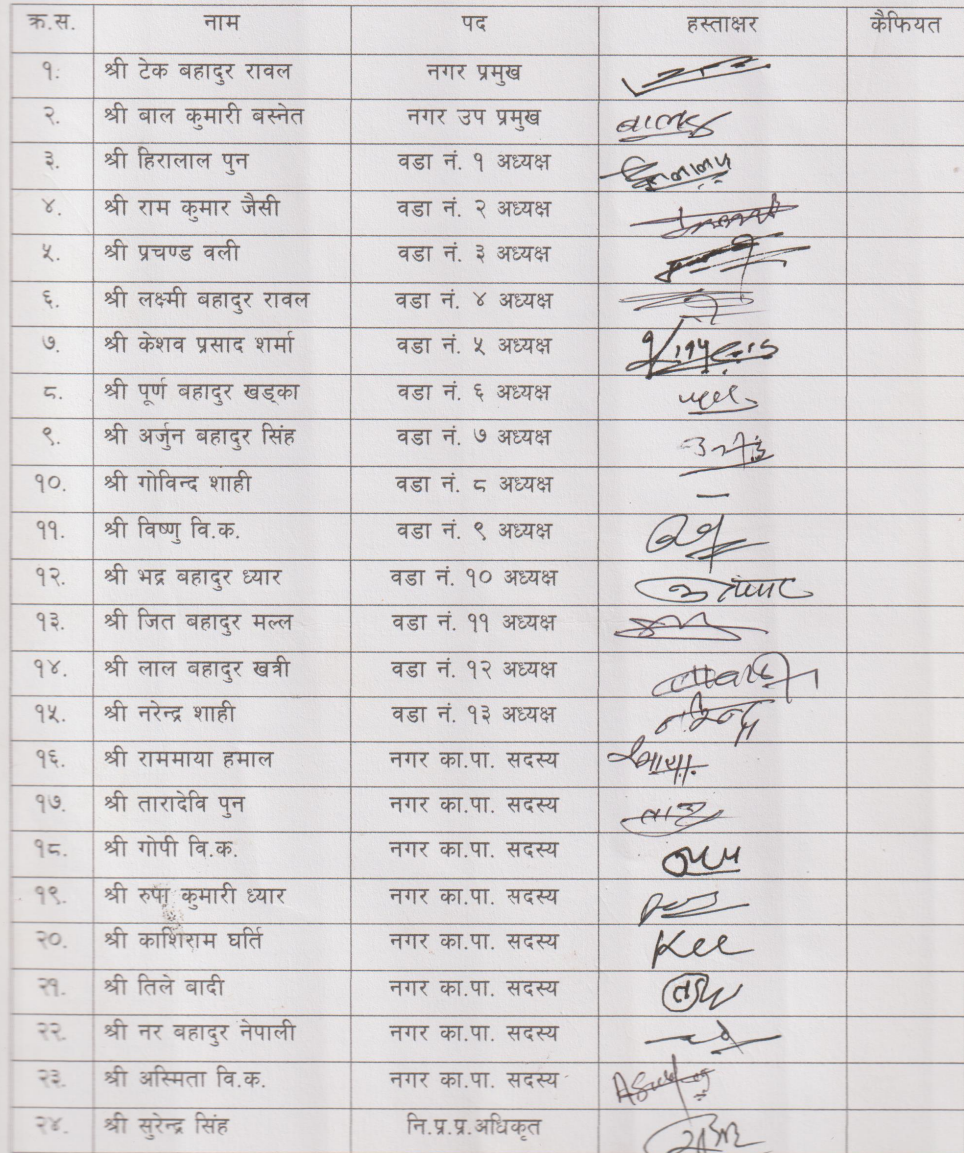 क्र.स. नाम पद हस्ताक्षर कैफियत
१. श्री टेक बहादुर रावल नगर प्रमुख
२. श्री बाल कुमारी बस्नेत नगर उप प्रमुख
३. श्री हिरालाल पुन वडा नं. १ अध्यक्ष
४. श्री राम कुमार जैसी वडा नं. २ अध्यक्ष
५. श्री प्रचण्ड वली वडा नं. ३ अध्यक्ष
६. श्री लक्ष्मी बहादुर रावल वडा नं. ४ अध्यक्ष
७. श्री केशव प्रसाद शर्मा वडा नं. ५ अध्यक्ष
८. श्री पूर्ण बहादुर खड्का वडा नं. ६ अध्यक्ष
९. श्री अर्जुन बहादुर सिंह वडा नं. ७ अध्यक्ष
१०. श्री गोविन्द शाही वडा नं. ८ अध्यक्ष –
११. श्री विष्णु वि.क. वडा नं. ९ अध्यक्ष
१२. श्री भद्र बहादुर ध्यार वडा नं. १० अध्यक्ष
१३. श्री जित बहादुर मल्ल वडा नं. ११ अध्यक्ष
१४. श्री लाल बहादुर खत्री वडा नं. १२ अध्यक्ष
१५. श्री नरेन्द्र शाही वडा नं. १३ अध्यक्ष
१६. श्री राममाया हमाल नगर का.पा. सदस्य
१७. श्री तारादेवि पुन नगर का.पा. सदस्य
१८. श्री गोपी वि.क. नगर का.पा. सदस्य
१९. श्री रुपा कुमारी ध्यार नगर का.पा. सदस्य
२०. श्री काशिराम घर्ति नगर का.पा. सदस्य
२१. श्री तिले वादी नगर का.पा. सदस्य
२२. श्री नर बहादुर नेपाली नगर का.पा. सदस्य
२३. श्री अस्मिता वि.क. नगर का.पा. सदस्य
२४. श्री सुरेन्द्र सिंह नि.प्र.प्र.अधिकृत